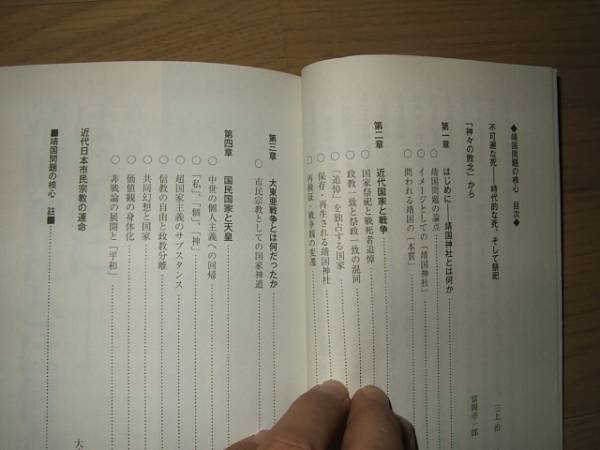 ◆靖国問題の核心　目次◆
不可避な死――時代的な死、そして祭祀
三上　治
「神々の敗北」から
富岡幸一郎
第一章　はじめに――靖国神社とは何か
○　靖国問題の論点
○　イメージとしての「靖国神社」
○　問われる靖国の「本質」
第二章　近代国家と戦争
○　国家祭祀と戦死者追悼
○　政教一致と祭政一致の混同
○　「追悼」を独占する国家
○　保存・再生される靖国神社
○　再検証・戦争観の変遷
第三章　大東亜戦争とは何だったか
○　市民宗教としての国家神道
第四章　国民国家と天皇
○　中世の個人主義への回帰
○　「私」、「個」、「神」
○　超国家主義のサブスタンス
○　信教の自由と政教分離
○　共同幻想と国家
○　価値観の身体化
○　非戦論の展開と「平和」
近代日本市民宗教の運命
大
■靖国問題の核心　註■